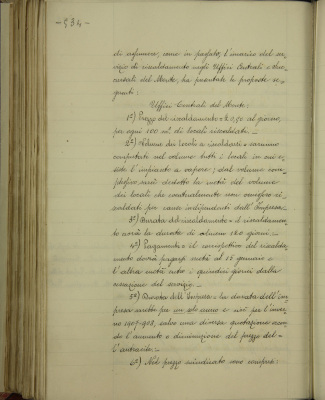 - 534 -
di assumere, come in passato, l'incarico del ser-
vizio di riscaldamento negli Uffici Centrali e Suc-
cursali del Monte, ha presentate le proposte se-
guenti:
Uffici Centrali del Monte:
1°) Prezzo del riscaldamento £ 0,50 al giorno,
per ogni 100 m³ di locali riscaldati. —
2°) Volume dei locali a riscaldarsi = saranno
computati nel volume tutti i locali in cui e-
siste l'impianto a vapore; dal volume com-
plessivo sarà dedotta la metà del volume
dei locali che eventualmente non vengano ri-
scaldati per causa indipendente dall'Impresa. —
3°) Durata del riscaldamento = il riscaldamen-
to avrà la durata di almeno 120 giorni. —
4°) Pagamento = il corrispettivo del riscalda-
mento dovrà pagarsi metà al 15 gennaio e
l'altra metà entro i quindici giorni dalla
cessazione del servizio. —
5°) Durata dell'Impresa = la durata dell'Im-
presa sarà per un solo anno e cioè per l'inver-
no 1907-908, salvo una diversa quotazione secon-
do l'aumento o diminuzione del prezzo del-
l'antracite. —
6°) Nel prezzo suindicato sono compresi: